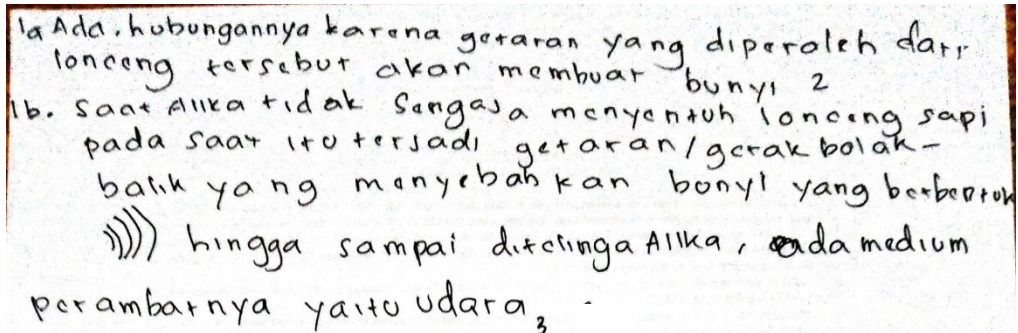 1a Ada. hubungannya karena getaran yang diperoleh dari
lonceng tersebut akan membuat bunyi 2
1b. Saat Alika tidak Sengaja menyentuh lonceng sapi
pada saat itu terjadi getaran/gerak bolak-
balik yang menyebabkan bunyi yang berbentuk
))))) hingga sampai ditelinga Alika, ada medium
perambarnya yaitu udara, 3